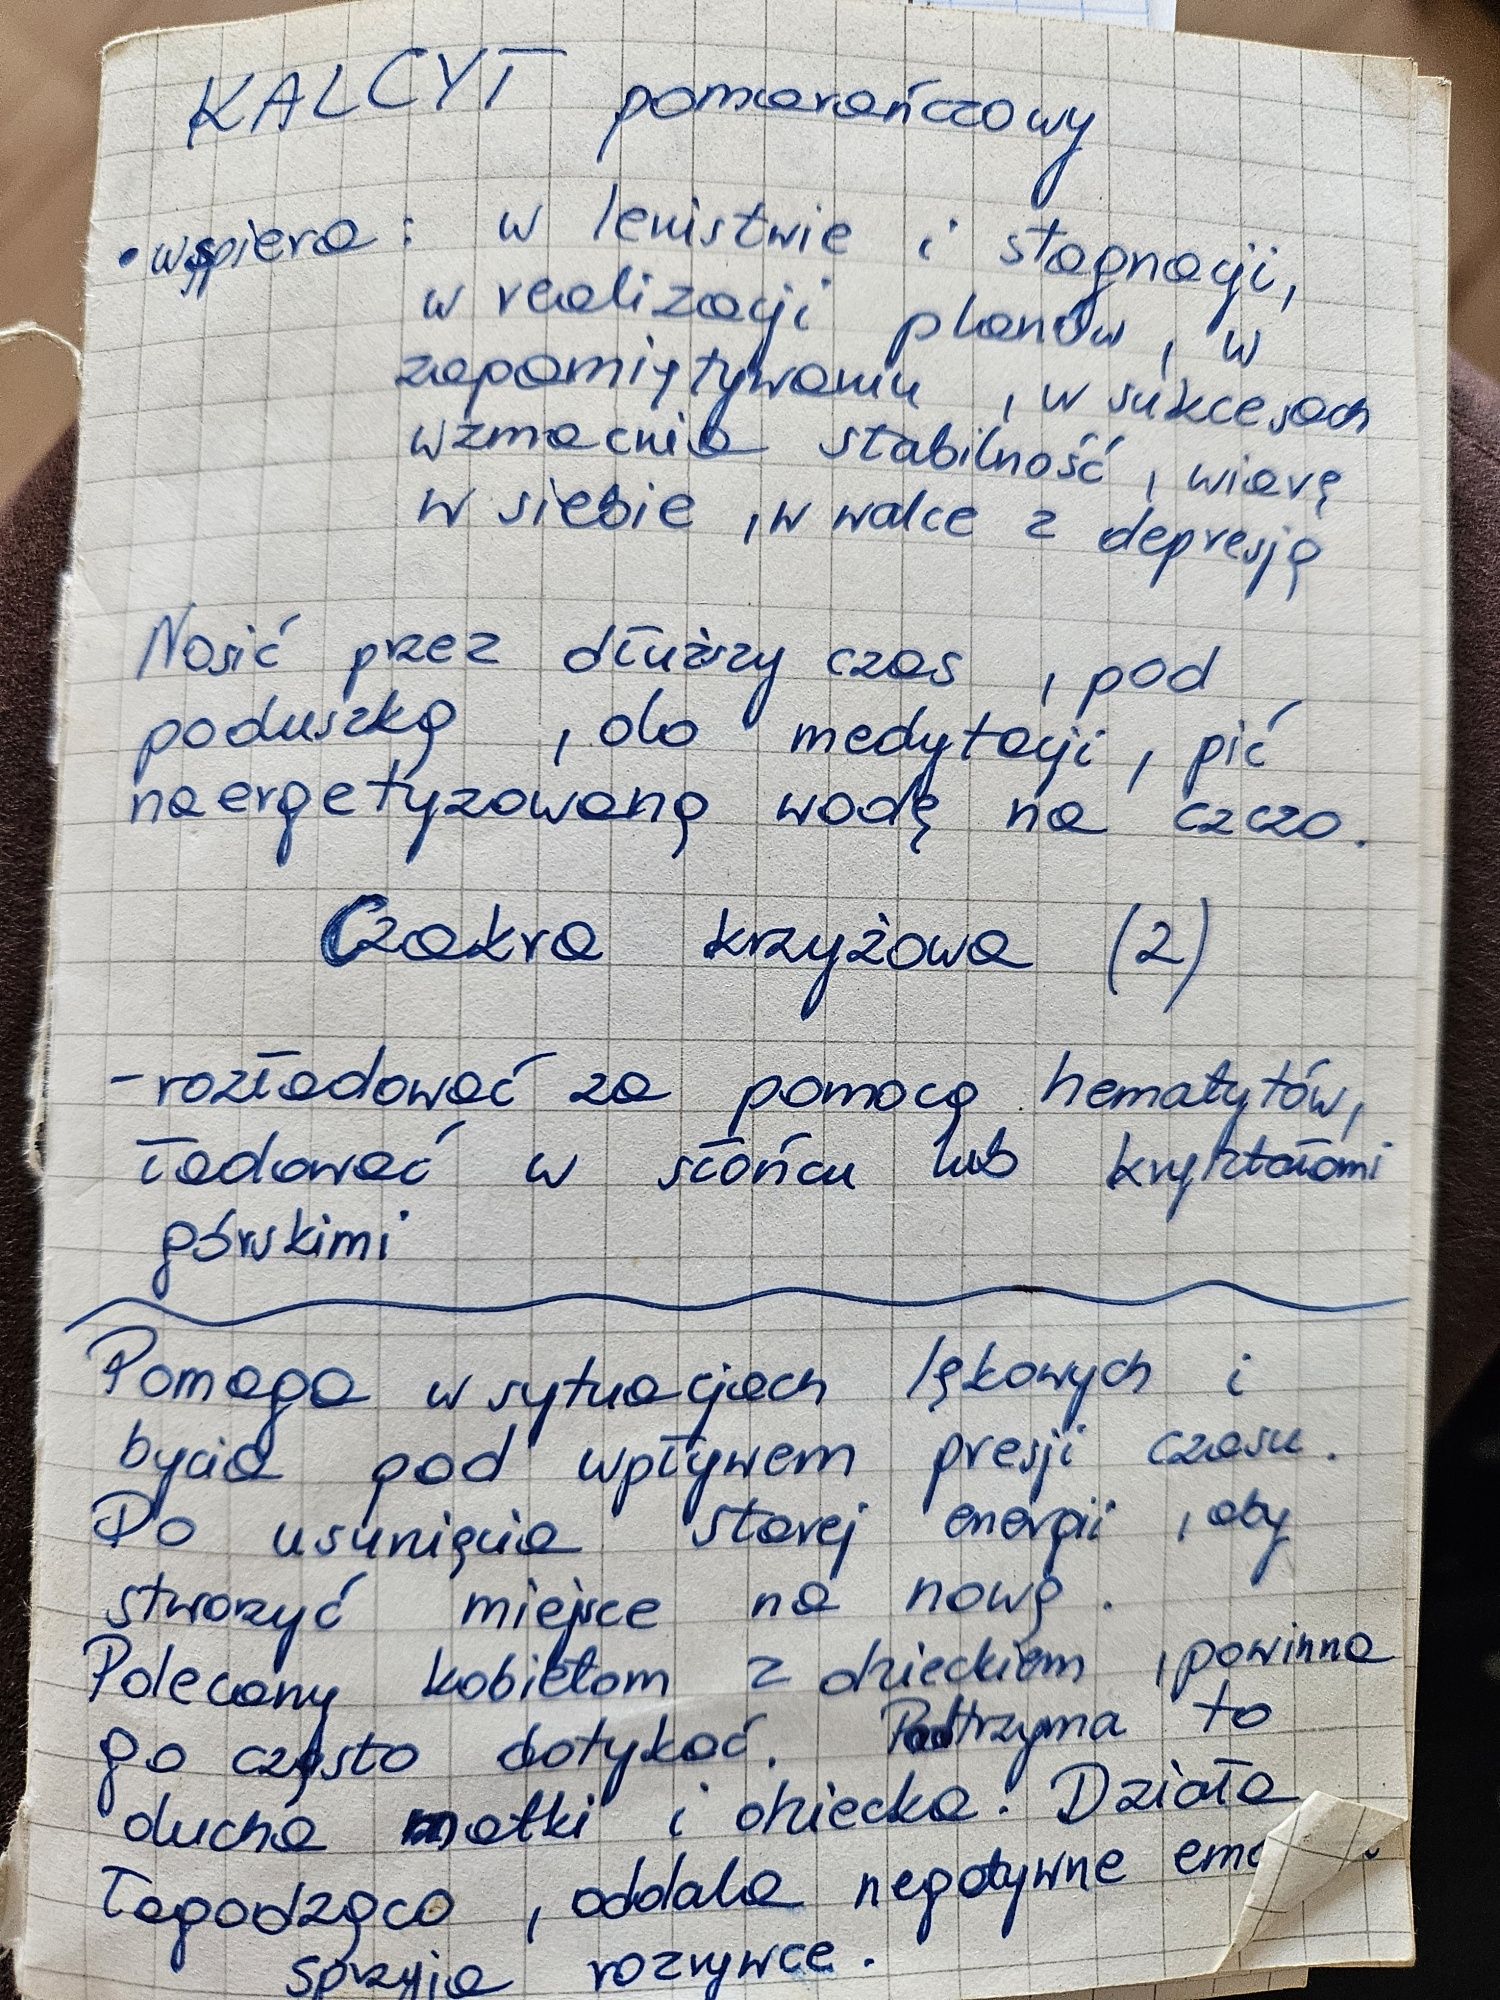 KALCYT pomarańczowy
• wspiera: w lenistwie i stagnacji,
w realizacji planów, w
zapamiętywaniu, w sukcesach
wzmacnia stabilność, wiarę
w siebie, w walce z depresją
Nosić przez dłuższy czas, pod
poduszką, do medytacji, pić
naergetyzowaną wodę na czczo.
Czakra krzyżowa (2)
- rozładować za pomocą hematytów,
ładować w słońcu lub kryształami
górskimi
Pomaga w sytuacjach lękowych i
bycia pod wpływem presji czasu.
Do usunięcia starej energii, aby
stworzyć miejsce na nową.
Polecany kobietom z dzieckiem, powinna
go często dotykać. Podtrzyma to
ducha matki i dziecka. Działa
łagodząco, oddala negatywne
sprzyja rozrywce.